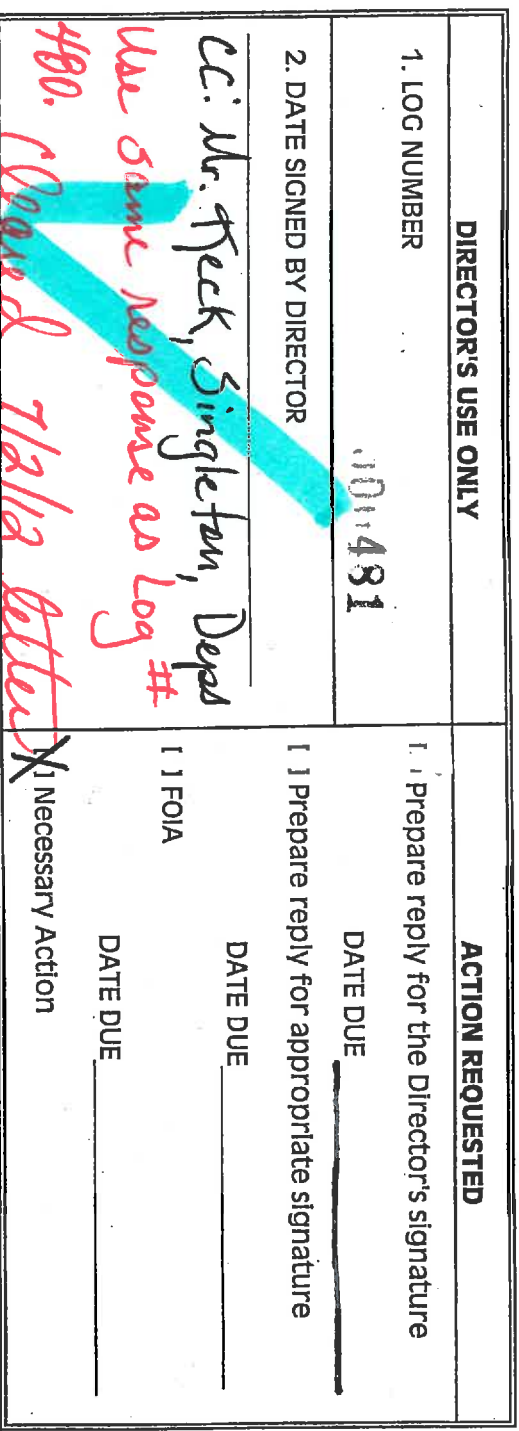 DIRECTOR'S USE ONLY
1. LOG NUMBER
000481
2. DATE SIGNED BY DIRECTOR
cc: Mr. Keck, Singleton, Deps
Use same response as Log #
480. Cleared 7/2/12 letter
ACTION REQUESTED
[ ] Prepare reply for the Director's signature
DATE DUE
[ ] Prepare reply for appropriate signature
DATE DUE
[ ] FOIA
DATE DUE
[X] Necessary Action